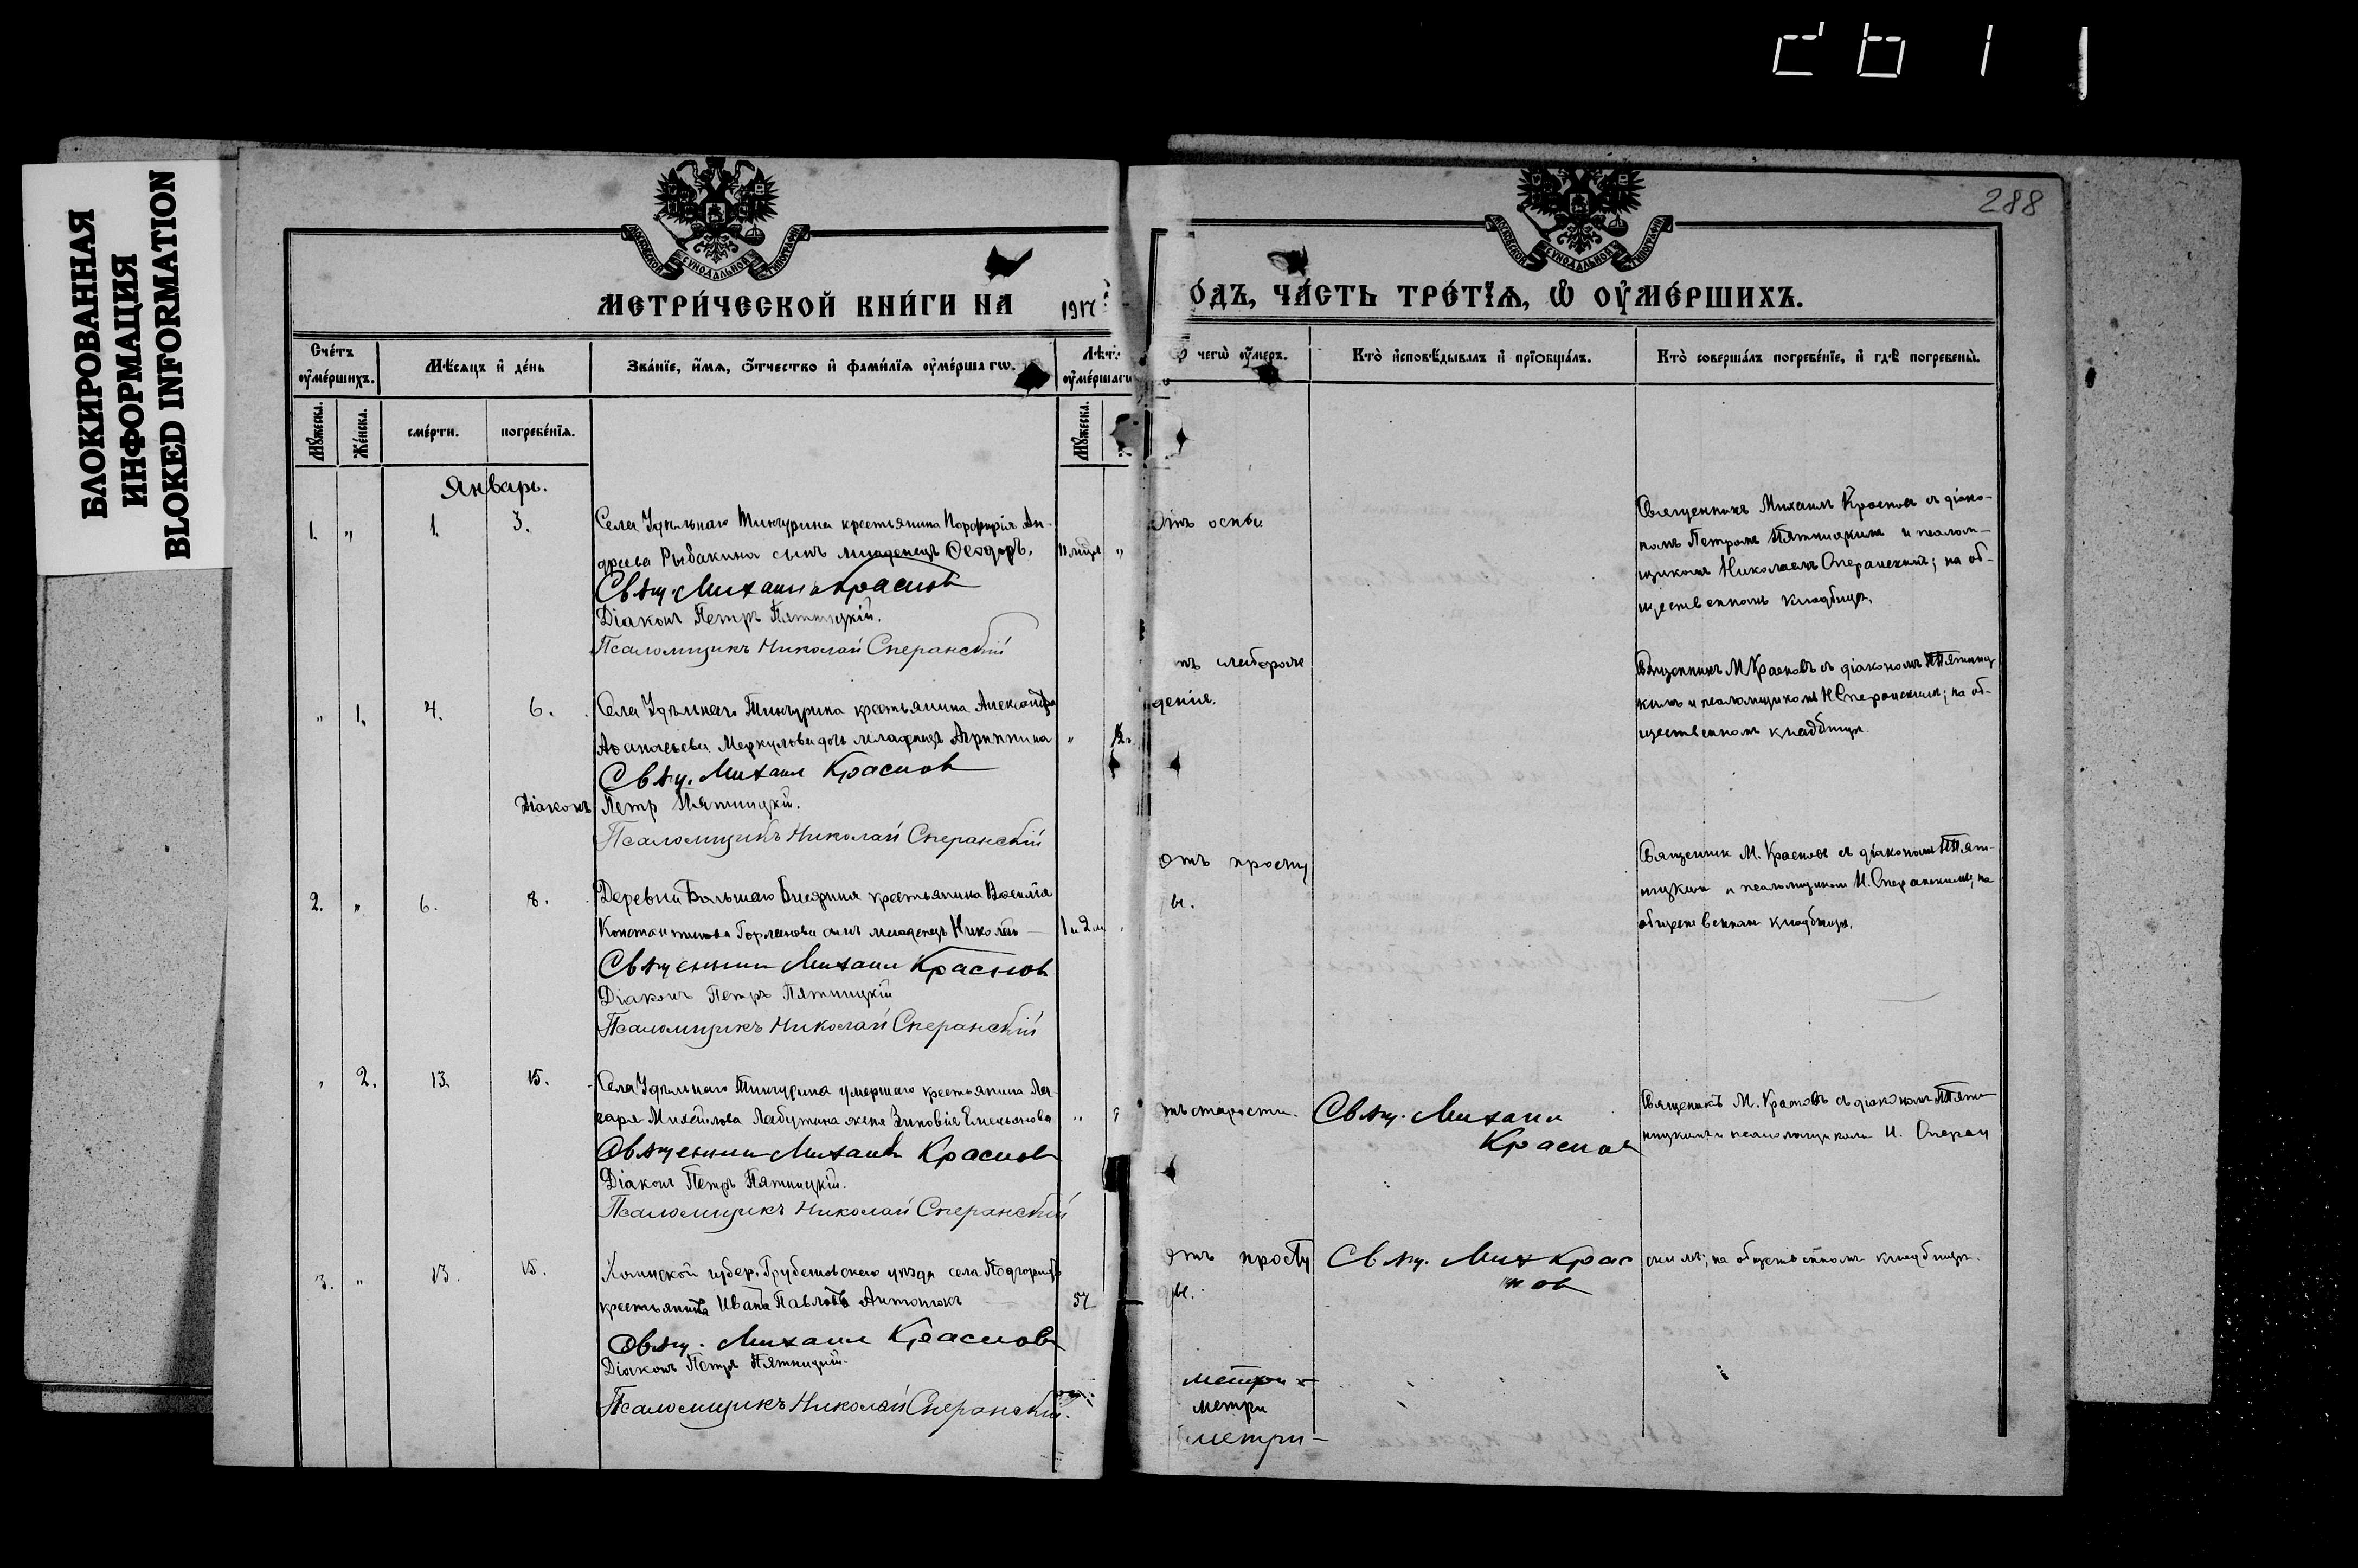 БЛОКИРОВАННАЯ
ИНФОРМАЦИЯ
BLOKED INFORMATION
288
МОСКОВСКОЙ СѴНОДАЛЬНОЙ ТИПОГРАФІИ
МОСКОВСКОЙ СѴНОДАЛЬНОЙ ТИПОГРАФІИ
МЕТРИ́ЧЕСКОЙ КНИ́ГИ НА 1917
О́ДЪ, ЧА́СТЬ ТРЕ́ТІЯ, Ѡ҆ ОУ҆МЕ́РШИХЪ.
Сче́тъ оу҆ме́ршихъ.
Мѣ́сяцъ и҆ де́нь
Зва́нїе, и҆́мя, ѻ҆́тчество и҆ фами́лїя оу҆ме́ршагѡ.
Лѣ́т
оу҆ме́ршаг
чегѡ̀ оу҆́меръ.
Кто̀ и҆сповѣ́дывалъ и҆ прїѡбща́лъ.
Кто̀ соверша́лъ погребе́нїе, и҆ гдѣ̀ погребены̀.
Мꙋ́жеска.
Же́нска.
сме́рти.
погребе́нїя.
Мꙋ́жеска.
Январь.
1. " 1. 3. Села Удѣльнаго Тинчурина крестьянина Порфирія Ан-
дреева Рыбакина сынъ младенецъ Ѳеодоръ. "
Свящ. Михаилъ Красновъ
Діаконъ Петръ Пятницкій.
Псаломщикъ Николай Сперанскій
Отъ оспы
Священникъ Михаилъ Красновъ съ діако-
номъ Петромъ Пятницкимъ и псалом-
щикомъ Николаемъ Сперанскимъ; на об-
щественномъ кладбищѣ.
" 1. 4. 6. Села Удѣльнаго Тинчурина крестьянина Александра
Аѳанасьева Меркулова дочь младенецъ Агриппина "
Свящ. Михаил Краснов
Діаконъ Петр Пятницкій.
Псаломщикъ Николай Сперанскій
дения.
Священникъ М. Красновъ съ діакономъ Пятниц
кимъ и псаломщикомъ Н. Сперанскимъ; на об-
щественномъ кладбищѣ.
2. " 6. 8. Деревни крестьянина Василія
Константинова сынъ младенецъ Николай
Священник Михаил Краснов
Діаконъ Петръ Пятницкій
Псаломщикъ Николай Сперанскій
Отъ просту
ы.
Священник М. Красновъ съ діакономъ Пят-
ницким и псаломщиком Н. Сперанскимъ; на
общественном кладбищѣ.
" 2. 13. 15. Села Удѣльнаго Тинчурина умершаго крестьянина Ла-
заря Михайлова жена Зиновія Емельянова "
Священник Михаил Краснов
Діаконъ Петръ Пятницкій.
Псаломщикъ Николай Сперанскій
тъ старости.
Свящ. Михаил
Краснов
Священикъ М. Красновъ съ діакономъ Пят-
ницкимъ и псаломщиком Н. Сперан
3. " 13. 15. Холмской губер. Грубешовскаго уѣзда села
крестьянина Ивана Павлова Антонюкъ 57
Свящ. Михаил Краснов
Діаконъ Петръ Пятницкій.
Псаломщикъ Николай Сперанскій.
Отъ просту
ы.
Свящ. Мих Крас
нов
скимъ; на общественномъ кладбищѣ.
метри
метри
метри-